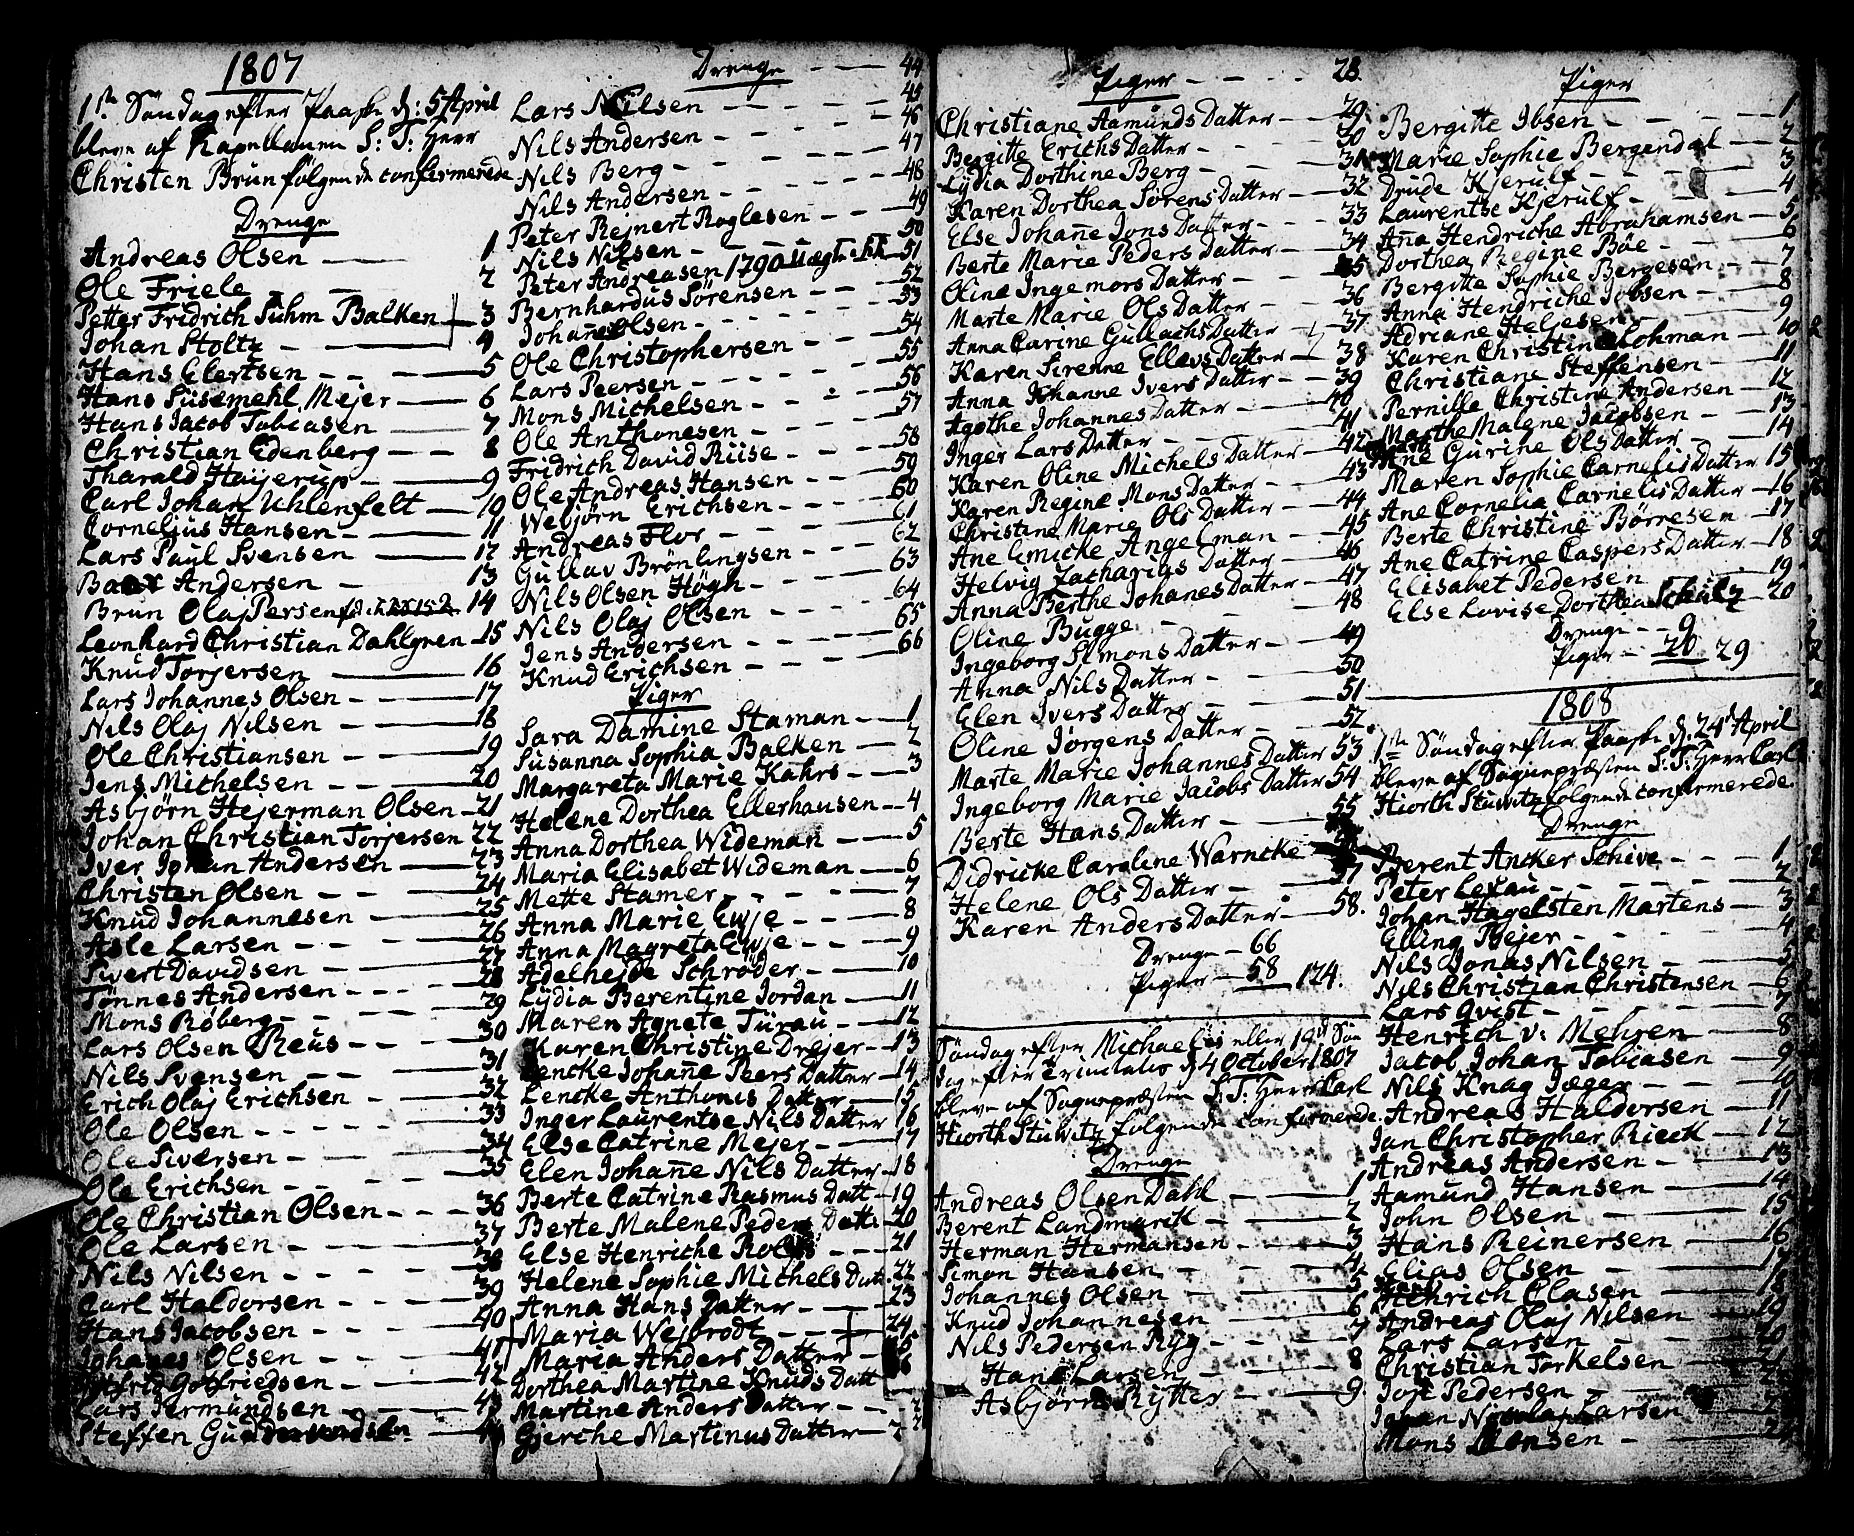 1807
1ste Søndag efter Paaske d: 5 April
bleve af Kapellanen S: T: Herr
Christen Brun følgende confirmerede
Drenge
Andreas Olsen — 1
Ole Friele — 2
Petter Fridrich Suhm Balken — 3
Johan Stoltz — 4
Hans Elertsen — 5
Hans Susemehl Mejer — 6
Hans Jacob Tobiasen — 7
Christian Edenberg — 8
Tharald Høyerup — 9
Carl Johan Uhlenfelt — 10
Cornelius Hansen — 11
Lars Paul Svensen — 12
Andersen — 13
Brun Olaj Persen — 14
Leonhard Christian Dahlgren — 15
Knud Torjersen — 16
Lars Johannes Olsen — 17
Nils Olaj Nilsen — 18
Ole Christiansen — 19
Jens Michelsen — 20
Asbjørn Hejerman Olsen — 21
Johan Christian Torjersen — 22
Iver Johan Andersen — 23
Christen Olsen — 24
Knud Johannesen — 25
Asle Larsen — 26
Sivert Davidsen — 27
Tønnes Andersen — 28
Mons Røberg — 29
Lars Olsen Reus — 30
Nils Svensen — 31
Erich Olaj Erichsen — 32
Ole Olsen — 33
Ole Siversen — 34
Ole Erichsen — 35
Ole Christian Olsen — 36
Ole Larsen — 37
Nils Nilsen — 38
Carl Haldorsen — 39
Hans Jacobsen — 40
Johanes Olsen — 41
Gotfriedsen — 42
Lars Permundsen — 43
Steffen
Drenge — 44
Lars Nilsen — 45
Nils Andersen — 46
Nils Berg — 47
Nils Andersen — 48
Peter Rejnert Roglesen — 49
Nils Nilsen — 50
Peter Andreasen 1790 — 51
Bernhardus Sørensen — 52
Johanes Olsen — 53
Ole Christophersen — 54
Lars Peersen — 55
Mons Michelsen — 56
Ole Anthonesen — 57
Fridrich David Riise — 58
Ole Andreas Hansen — 59
Webjörn Erichsen — 60
Andreas Flor — 61
Gullav Brönlingsen — 62
Nils Olsen Högh — 63
Nils Olaj Olsen — 64
Jens Andersen — 65
Knud Erichsen — 66
Piger
Sara Damine Staman — 1
Susanna Sophia Balken — 2
Margareta Marie Kahrs — 3
Helene Dorthea Ellerhausen — 4
Anna Dorthea Wideman — 5
Maria Elisabet Wideman — 6
Mette Stamer — 7
Anna Marie Gyje — 8
Anna Magreta Gyje — 9
Adelhejde Schrøder — 10
Lydia Berentine Jordan — 11
Maren Agnete Türau — 12
Karen Christine Drejer — 13
Lencke Johañe Peers Datter — 14
Lencke Anthonis Datter — 15
Inger Laurentse Nils Datter 16
Else Catrine Mejer — 17
Elen Johañe Nils Datter — 18
Berte Catrine Rasmus Datt — 19
Berte Malene Peders Datt: 20
Else Henriche — 21
Helene Sophie Michels Datt. 22
Anna Hans Datter — 23
Maria Wejbrodt — 24
Maria Anders Datter
Dorthea Martine Knuds Datt
Martine Anders Datter
Gjerche Martinus Datter
Piger — 28
Christiane Aamunds Datter — 29
Bergitte Erichs Datter — 30
Lydia Dorthine Berg — 31
Karen Dorthea Sørens Datter — 32
Else Johañe Jons Datter — 33
Berte Marie Peders Datter — 34
Oline Ingemors Datter — 35
Marte Marie Ols Datter — 36
Anna Carine Gullachs Datter — 37
Karen Sirenne Ellevs Datter — 38
Anna Johanne Ivers Datter — 39
Agothe Johannes Datter — 40
Inger Lars Datter — 41
Karen Oline Michels Datter — 42
Karen Regine Mons Datter — 43
Christine Marie Ols Datter — 44
Ane Emicke Angelman — 45
Helvig Zacharias Datter — 46
Anna Berthe Johanes Datter — 47
Oline Bugge — 48
Ingeborg Simons Datter — 49
Anna Nils Datter — 50
Elen Ivers Datter — 51
Oline Jørgens Datter — 52
Marte Marie Johannes Datter 53
Ingeborg Marie Jacobs Datter 54
Berte Hans Datter — 55
Didricke Caroline Warncke
Helene Ols Datter — 57
Karen Anders Datter — 58.
Drenge — 66
Piger — 58 124.
Søndag efter Michaelis eller 19de Søn
dag efter Trinitatis d 4 October 1807
bleve af Sognepræsten S: T: Herr Carl
Hiorth Stuwitz følgende confirmerede
Drenge
Andreas Olsen Dahl — 1
Berent Landmarck — 2
Herman Hermansen — 3
Simon Hansen — 4
Johannes Olsen — 5
Knud Johannesen — 6
Nils Pedersen Ryg — 7
Hans Larsen — 8
Asbjørn Rÿtter — 9
Piger
Bergitte Ibsen — 1
Marie Sophie Bergendal — 2
Drude Kjerulf — 3
Laurentse Kjerulf — 4
Aña Hendriche Abrahamsen — 5
Dorthea Regine Böe — 6
Bergitte Sophie Bergesen — 7
Anna Hendriche Jobsen — 8
Adriane Heljesen — 9
Karen Christine Lohman — 10
Christiane Steffensen — 11
Pernille Christine Andersen — 12
Marthe Malene Jacobsen — 13
Ane Gurine Ols Datter — 14
Maren Sophie Cornelis Datter 15
Ane Cornelia Cornelis Datter — 16
Berte Christine Børresen — 17
Ane Catrine Caspers Datter — 18
Elisabet Pedersen — 19
Else Lovise Dorthea Schulz — 20
Drenge — 9
Piger — 20 29
1808
1ste Søndag efter Paaske d. 24de April
bleve af Sognepræsten S. T. Herr Carl
Hiorth Stuwitz følgende confirmerede.
Drenge
Berent Ancker Schive — 1
Peter Lexau — 2
Johan Hagelsten Martens — 3
Elling Bejer — 4
Nils Jonas Nilsen — 5
Nils Christian Christensen — 6
Lars Qvist — 7
Henrich v: Mehren — 8
Jacob Johan Tobiasen — 9
Nils Knag Jæger — 10
Andreas Haldorsen — 11
Jan Christopher Rieck — 12
Andreas Andersen — 13
Aamund Hansen — 14
John Olsen — 15
Hans Reinersen — 16
Elias Olsen — 17
Henrich Clasen — 18
Andreas Olaj Nilsen — 19
Lars Larsen — 20
Christian Torkelsen — 21
Jost Pedersen
Johan Nicolaj Larsen
Mons Monsen